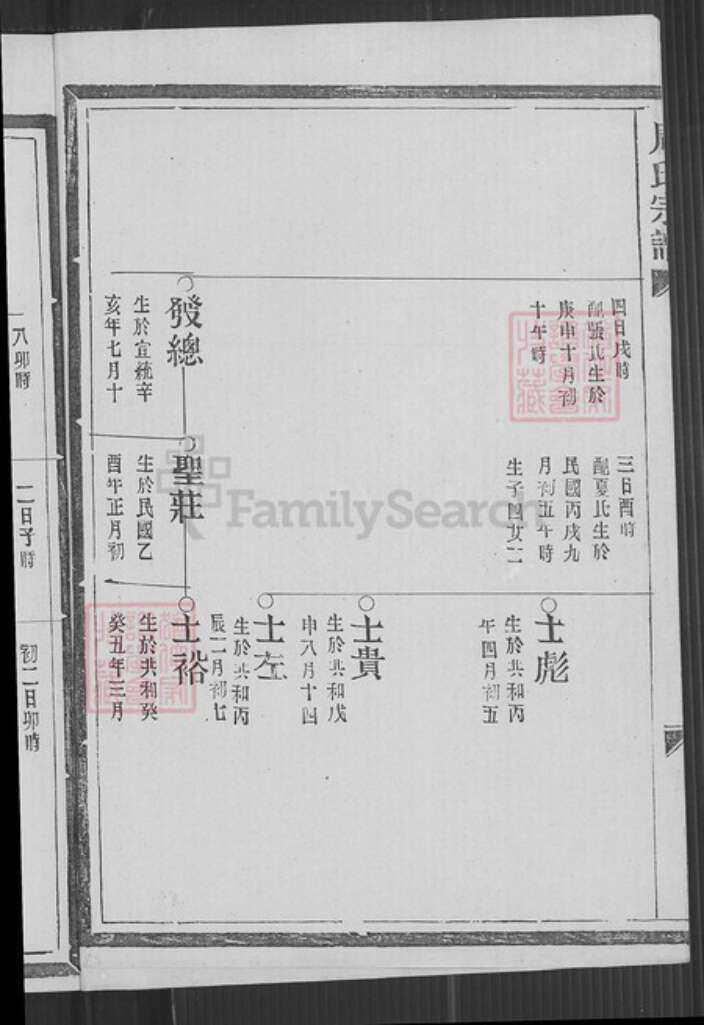 周氏宗譜
四日戌時
配張氏生於
庚申十月初
十午時
三日酉時
配夏氏生於
民國丙戌九
月初五午時
生子四女二
士彪
生於共和丙
午四月初五
士貴
生於共和戊
申八月十四
士左
生於共和丙
辰二月初七
發總
生於宣統辛
亥年七月十
聖莊
生於民國乙
酉年正月初
士裕
生於共和癸
癸丑年三月
八卯時
二日子時
初二日卯時
FamilySearch